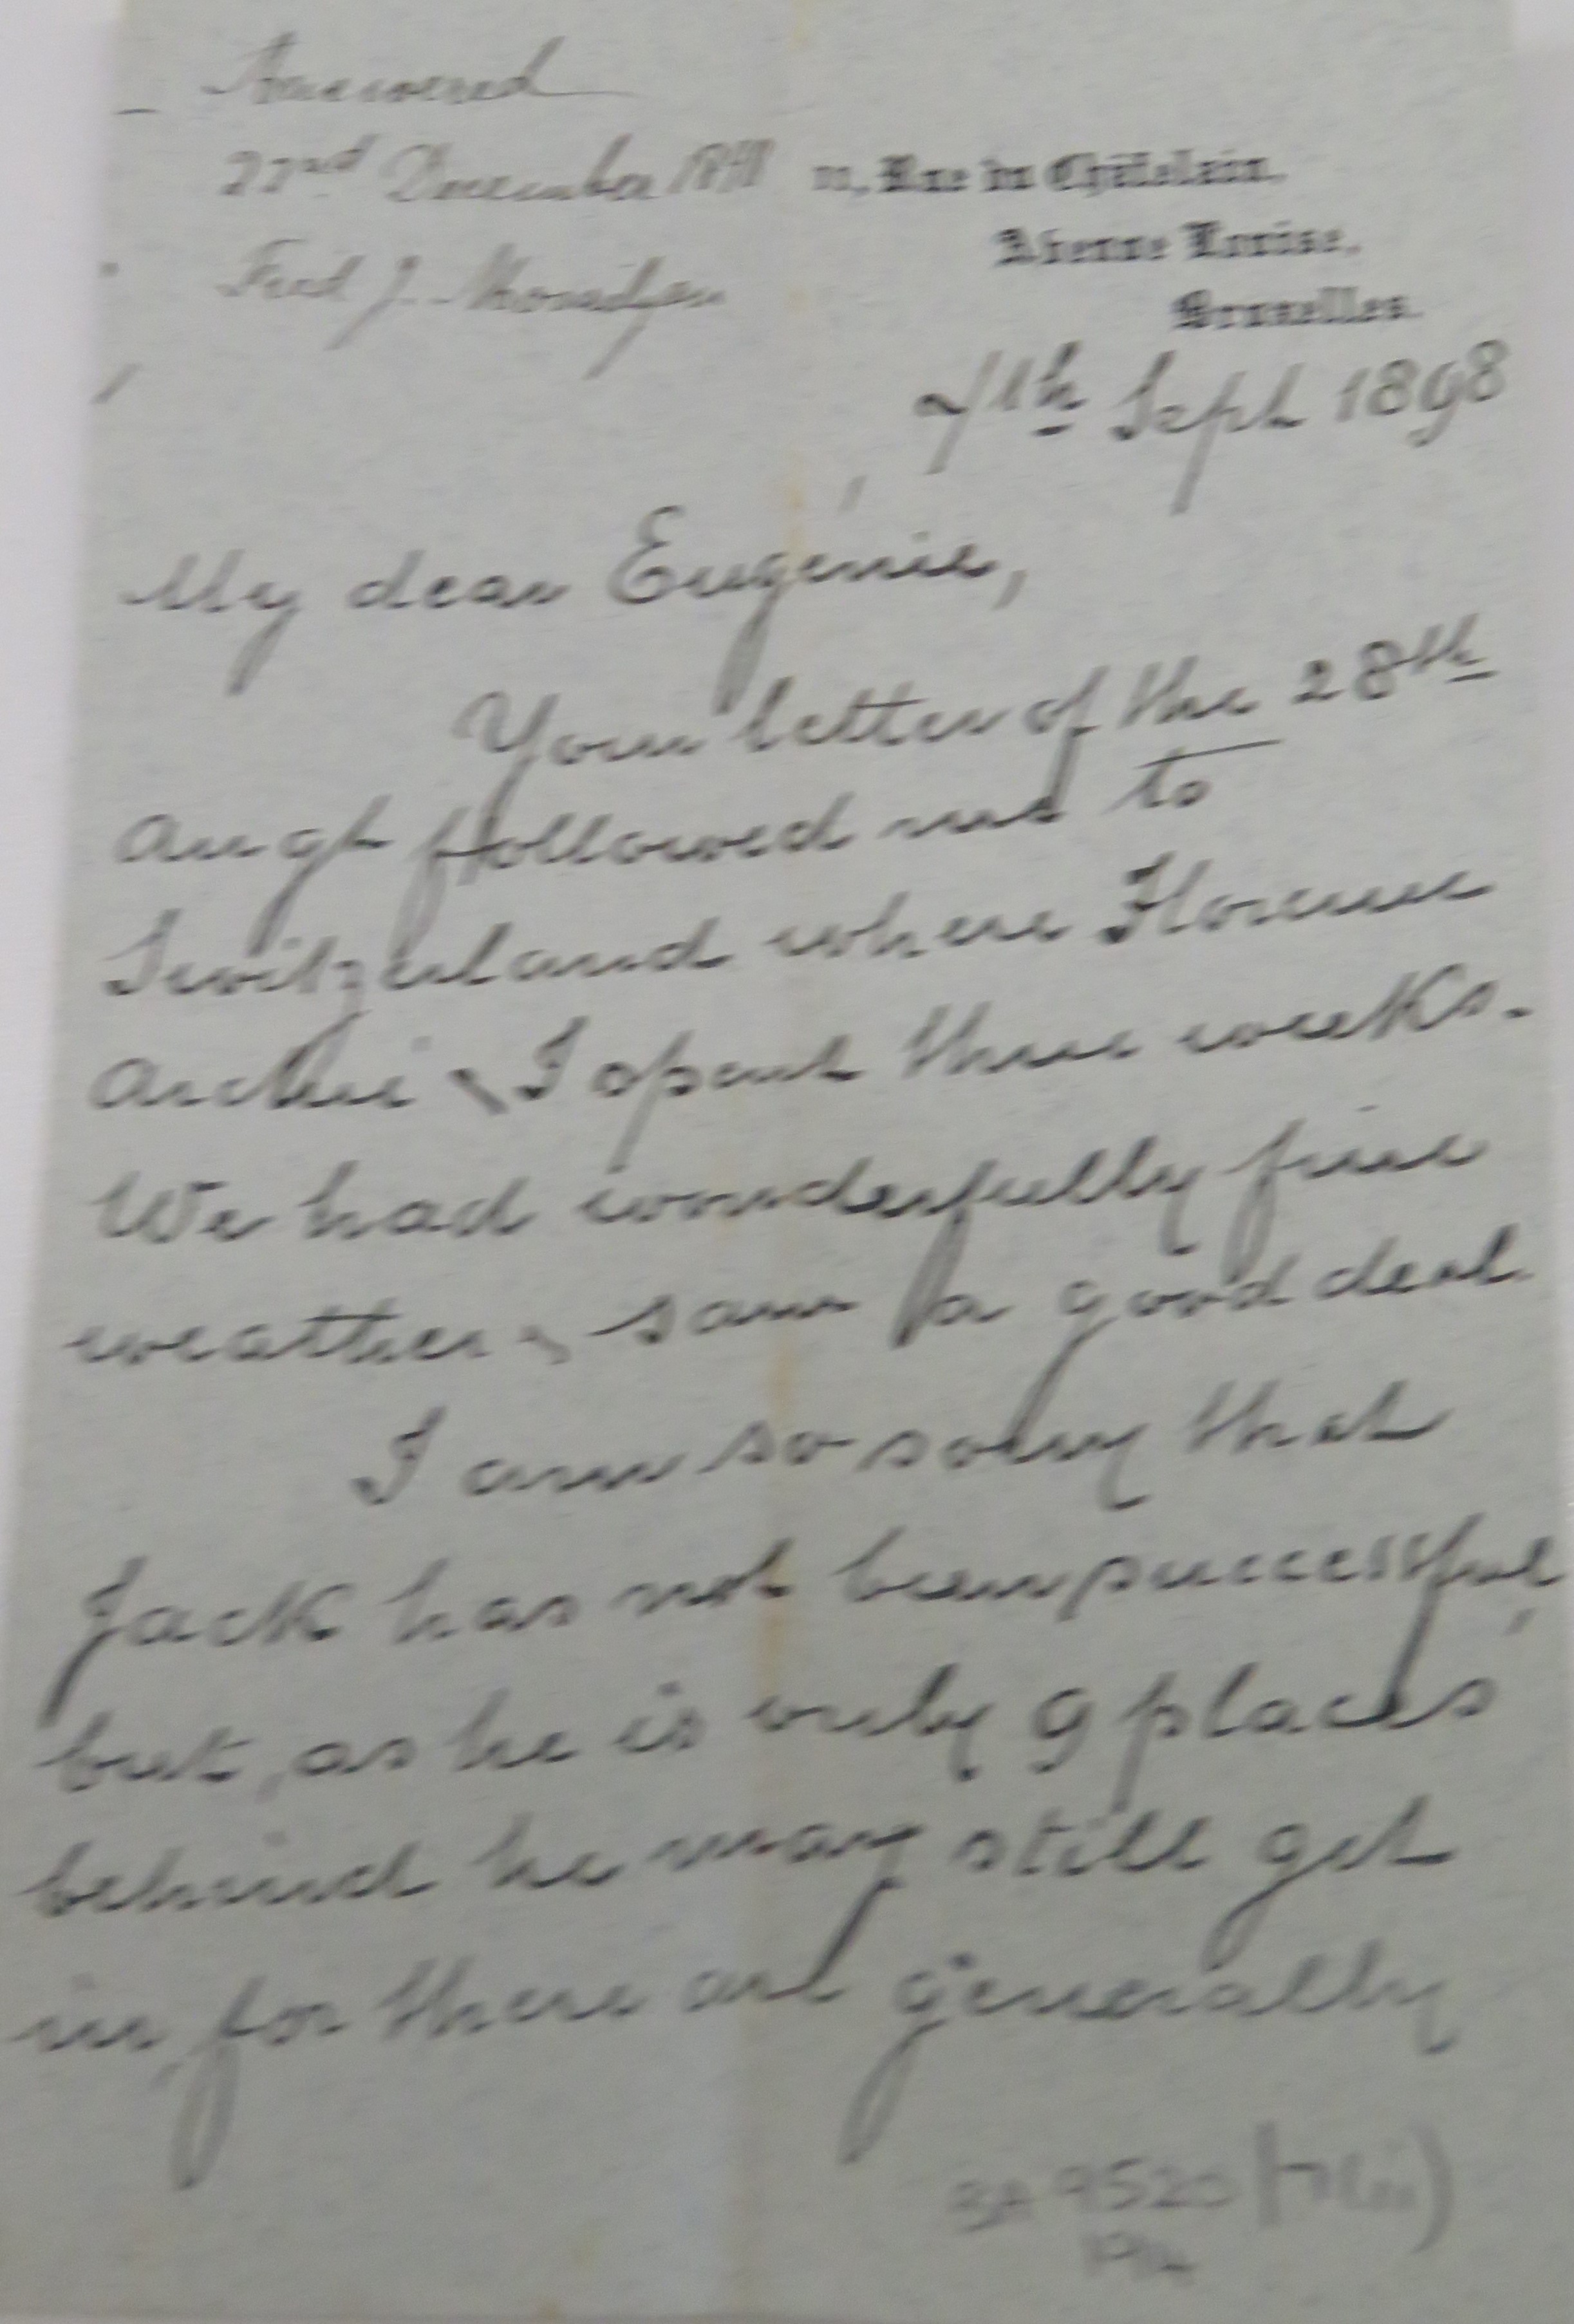 Answered
22nd December 1898
Fred J.
Rue du Châtelain,
Avenue Louise,
Bruxelles.
7th Sept 1898
My dear Eugénie,
Your letter of the 28th
Augt followed me to
Switzerland where Florence
Archie & I spent three weeks.
We had wonderfully fine
weather & saw a good deal.
I am so sorry that
Jack has not been successful,
but, as he is only 9 places
behind he may still get
in, for there are generally
BA 9520